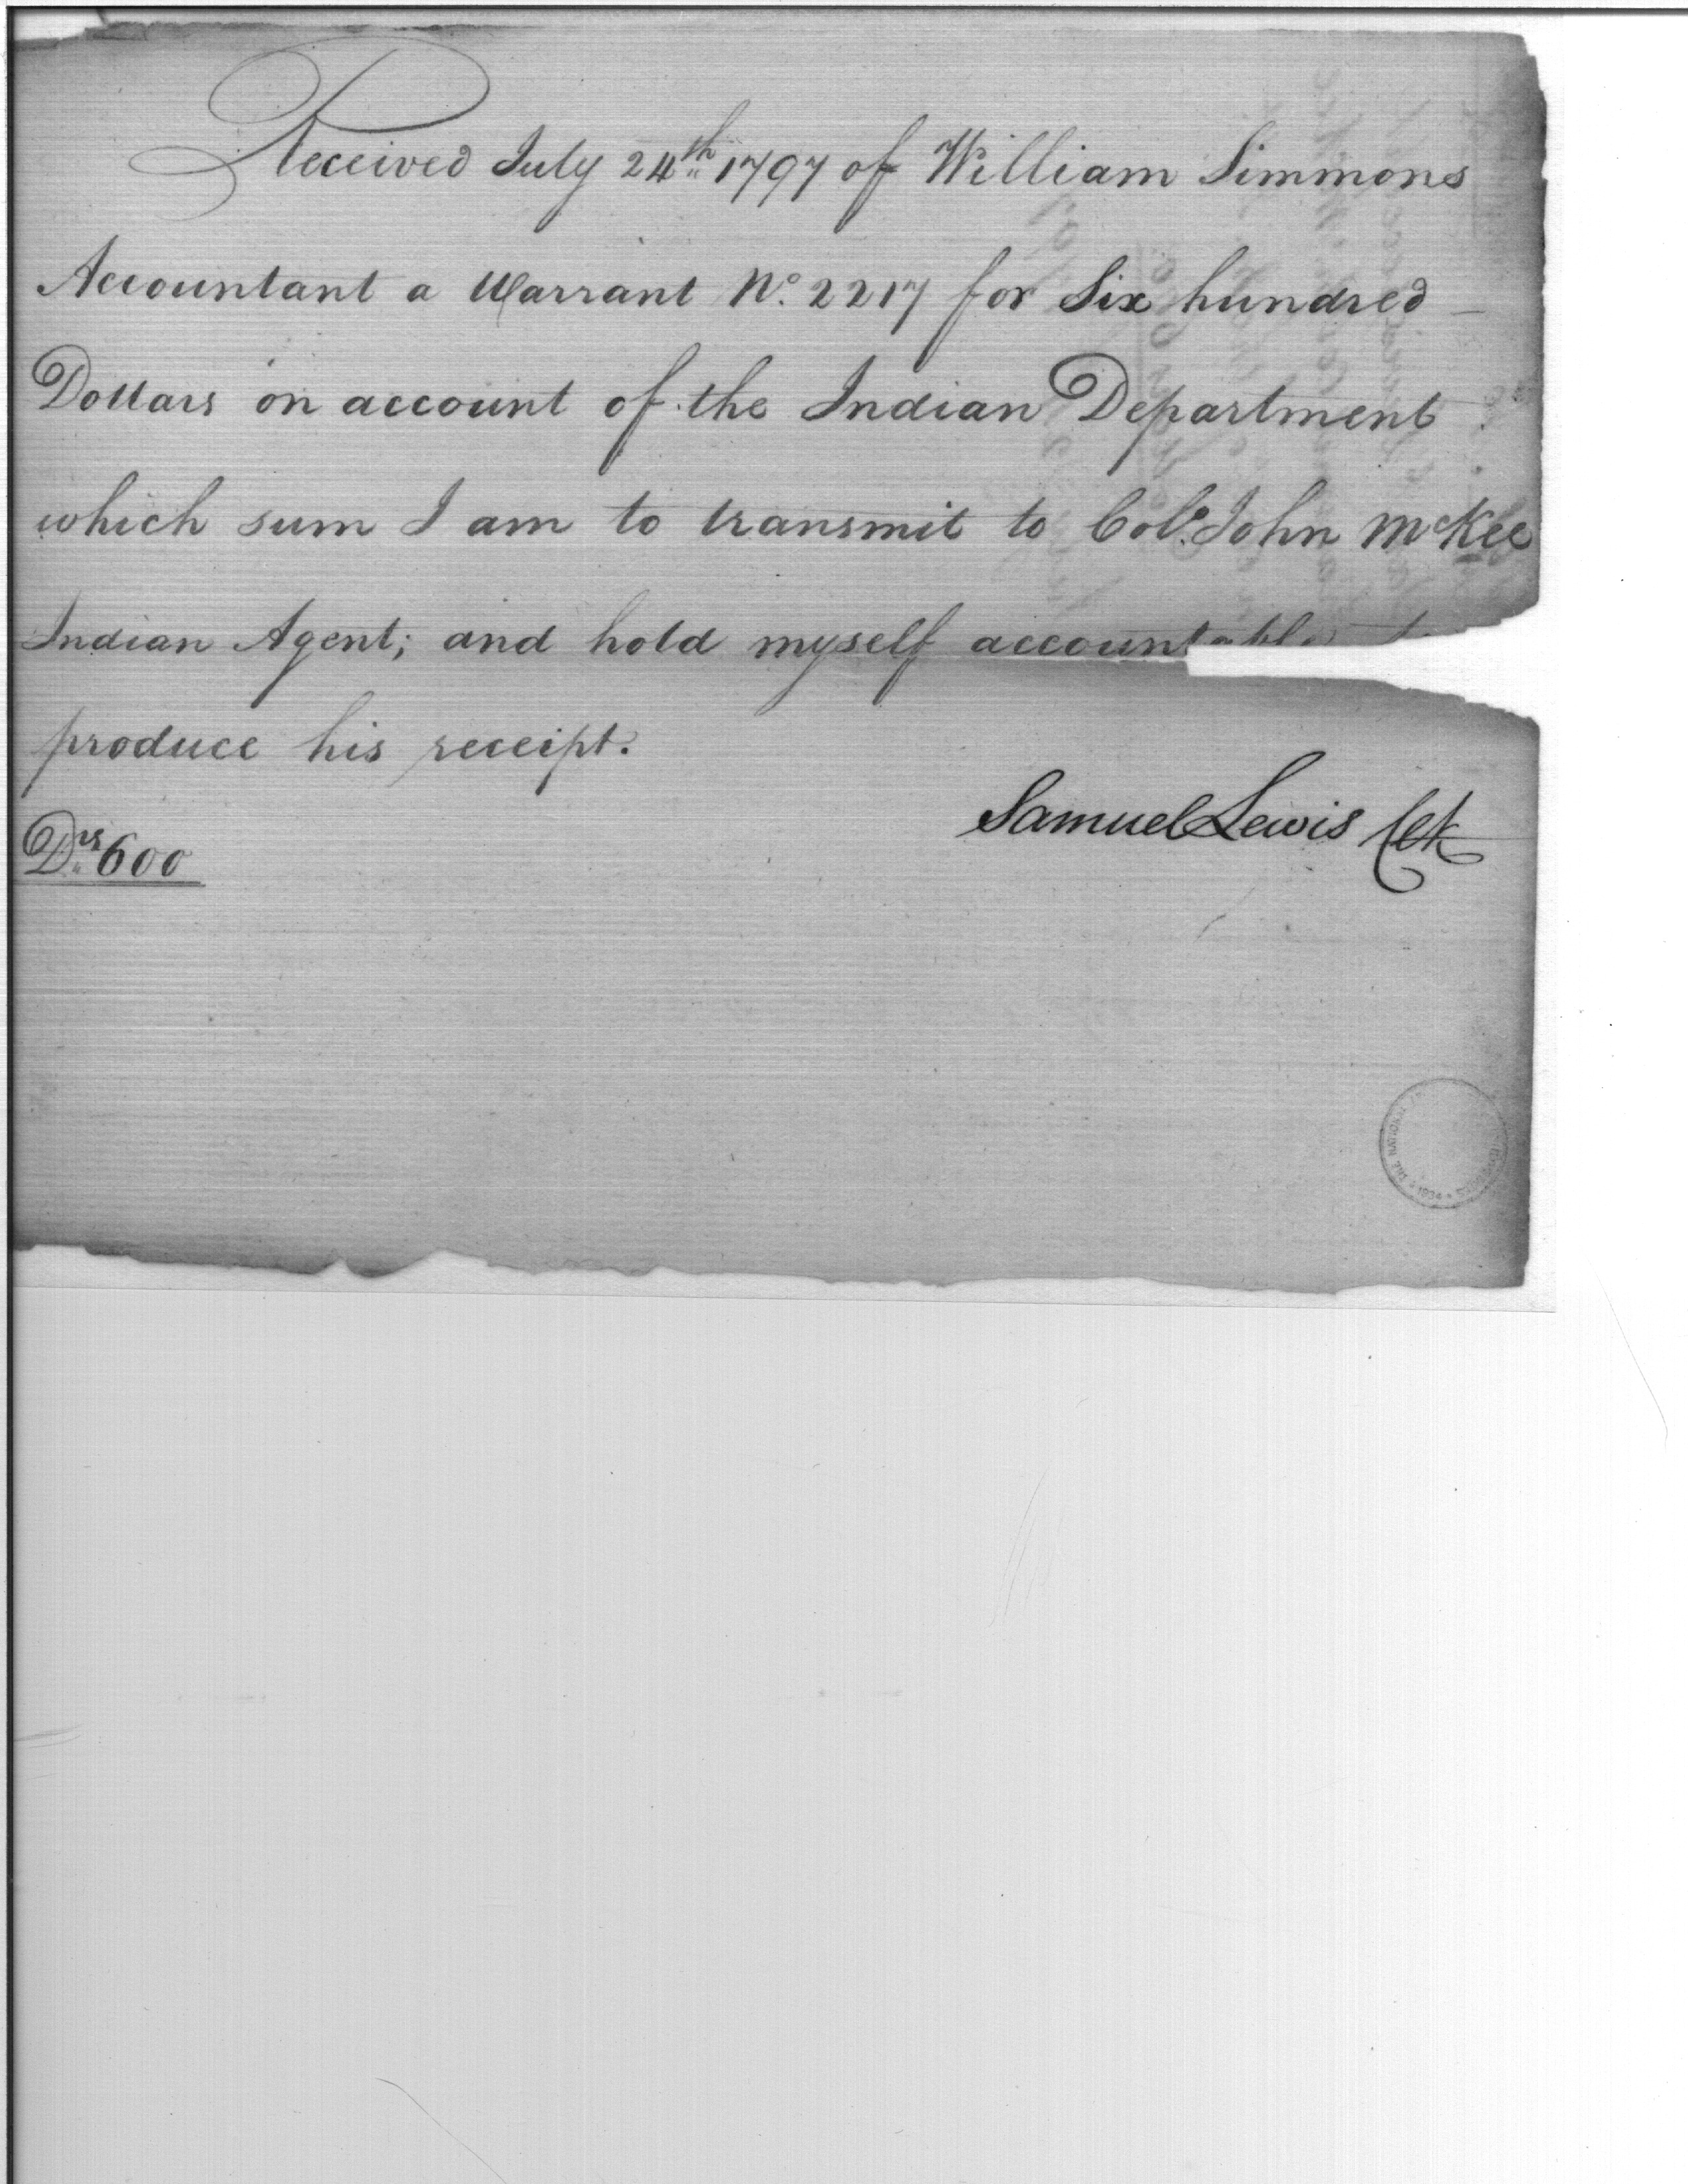 Received July 24th 1797 of William Simmons
Accountant a Warrant No. 2217 for Six hundred
Dollars on account of the Indian Department
which sum I am to transmit to Colo. John McKee
Indian Agent; and hold myself accountable to
produce his receipt.
Samuel Lewis Clk
Drs 600